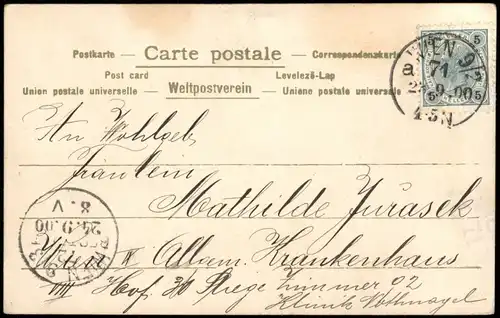 Postkarte — Carte postale — Correspondenzkarte
Post card Levelező-Lap
Union postale universelle — Weltpostverein — Uniene postale universale
WIEN 9/2
71
9 .00
4-5N
5
5 5
An Wohlgeb.
Fräulein
Mathilde Jurasek
Wien IX Allgem. Krankenhaus
VIII Hof, Stiege Zimmer 02
Klinik Nothnagel
8. V
24.9.00
WIEN